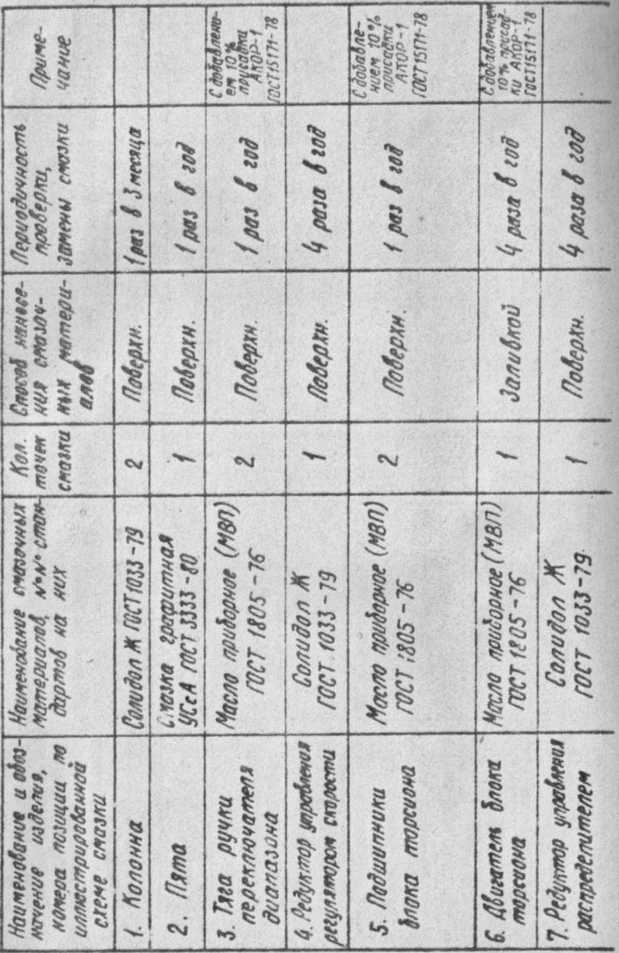 Наименование и обоз-
начение изделия,
номера позиции по
иллюстрированной
схеме смазки
Наименование смазочных
материалов, №№ стан-
дартов на них
Кол.
точек
смазки
Способ нанесе-
ния смазоч-
ных матери-
алов
Периодичность
проверки,
замены смазки
Приме-
чание
1. Колонна
Солидол Ж ГОСТ 1033-79
2
Поверхн.
1 раз в 3 месяца
2. Пята
Смазка графитная
УСсА ГОСТ 3333-80
1
Поверхн.
1 раз в год
3. Тяга ручки
переключателя
диапазона
Масло приборное (МВП)
ГОСТ 1805-76
2
Поверхн.
1 раз в год
С добавлени-
ем 10%
присадки
АКОР-1
ГОСТ 15171-78
4. Редуктор управления
регулятором скорости
Солидол Ж
ГОСТ 1033-79
1
Поверхн.
4 раза в год
5. Подшипники
блока торсиона
Масло приборное (МВП)
ГОСТ 1805-76
2
Поверхн.
1 раз в год
С добавле-
нием 10%
присадки
АКОР-1
ГОСТ 15171-78
6. Двигатель блока
торсиона
Масло приборное (МВП)
ГОСТ 1805-76
1
Заливкой
4 раза в год
С добавлением
10% присад-
ки АКОР-1
ГОСТ 15171-78
7. Редуктор управления
распределителем
Солидол Ж
ГОСТ 1033-79
1
Поверхн.
4 раза в год